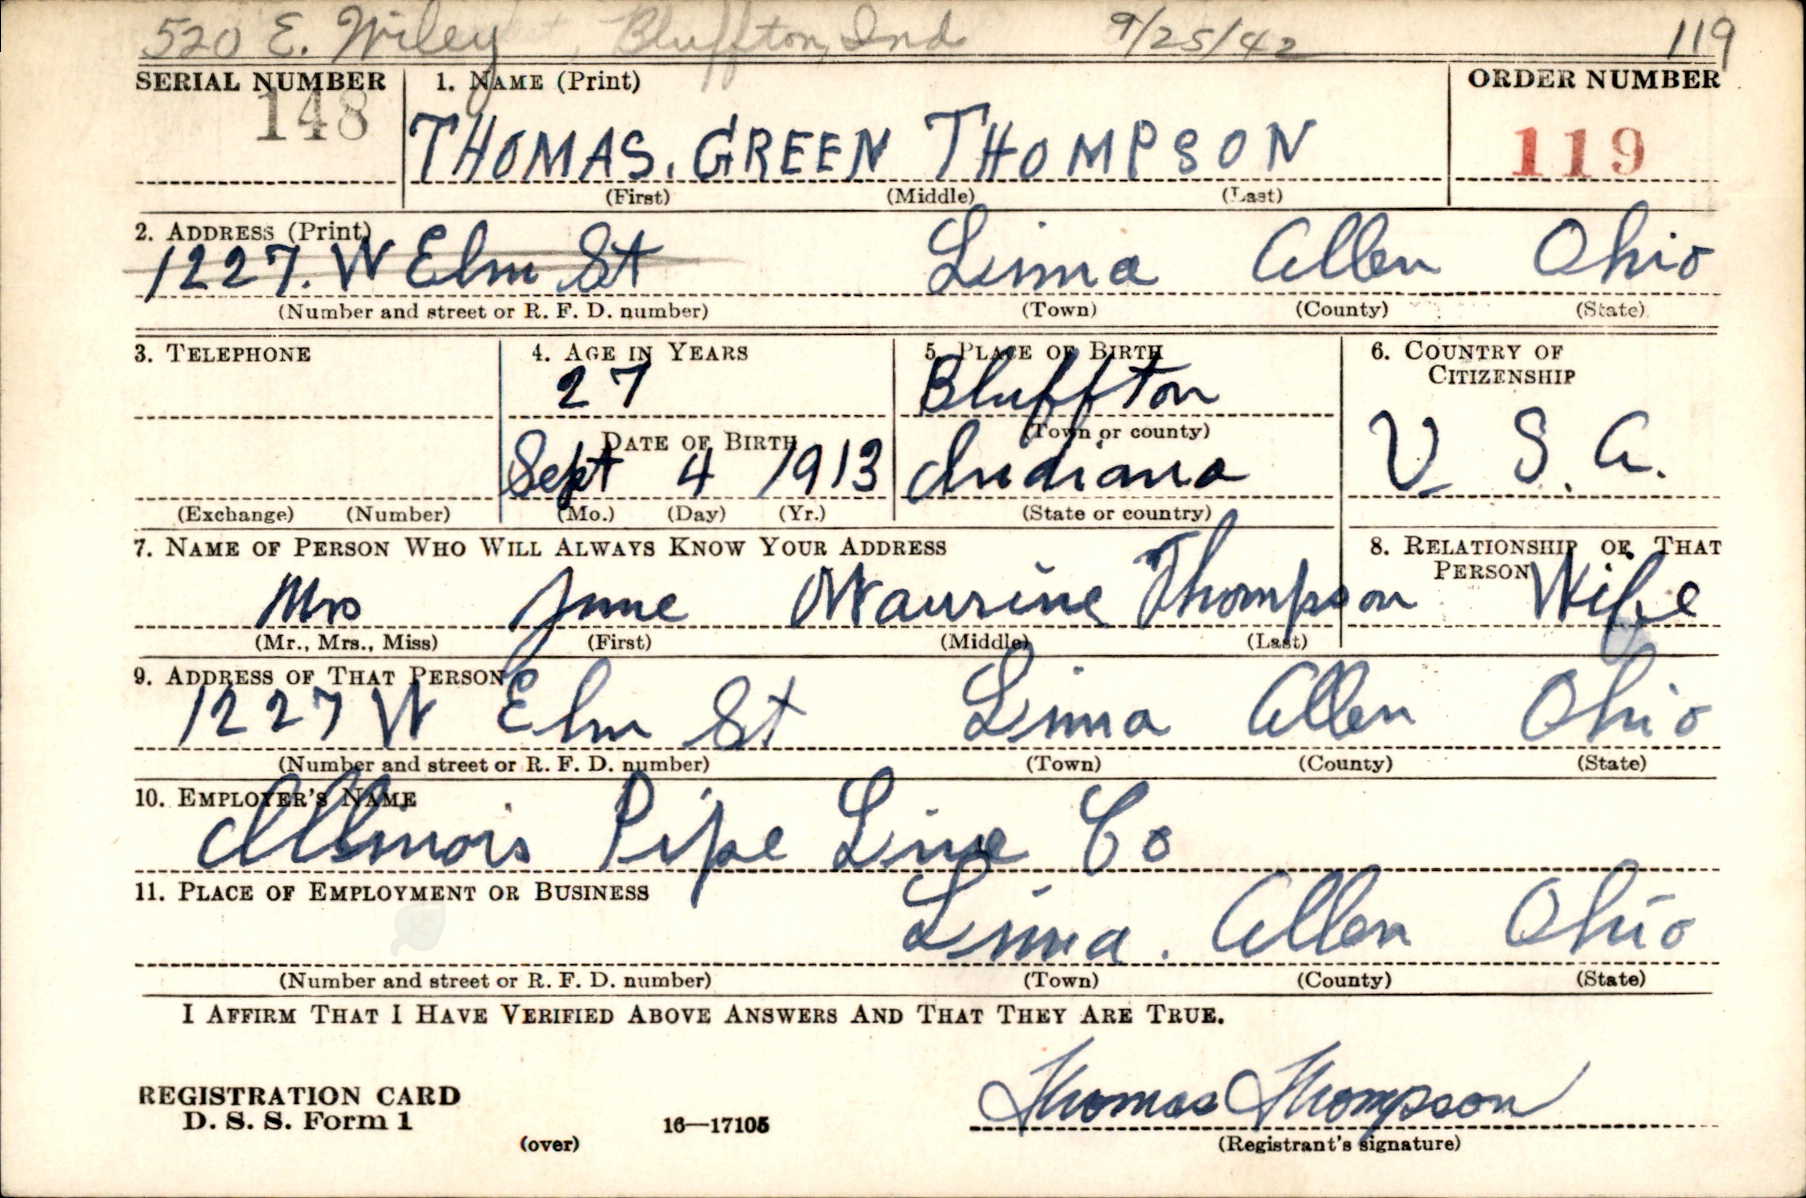 520 E. Wiley, Bluffton, Ind 9/25/42 119
SERIAL NUMBER 1. NAME (Print) ORDER NUMBER
148 THOMAS. GREEN THOMPSON 119
(First) (Middle) (Last)
2. ADDRESS (Print)
1227. W Elm St Lima Allen Ohio
(Number and street or R. F. D. number) (Town) (County) (State)
3. TELEPHONE 4. AGE IN YEARS 5. PLACE OF BIRTH 6. COUNTRY OF
CITIZENSHIP
27 Bluffton
DATE OF BIRTH (Town or county)
Sept 4 1913 Indiana U S. A.
(Exchange) (Number) (Mo.) (Day) (Yr.) (State or country)
7. NAME OF PERSON WHO WILL ALWAYS KNOW YOUR ADDRESS 8. RELATIONSHIP OF THAT
PERSON
Mrs June Maurine Thompson Wife
(Mr., Mrs., Miss) (First) (Middle) (Last)
9. ADDRESS OF THAT PERSON
1227 W Elm St Lima Allen Ohio
(Number and street or R. F. D. number) (Town) (County) (State)
10. EMPLOYER'S NAME
Illinois Pipe Line Co
11. PLACE OF EMPLOYMENT OR BUSINESS
Lima. Allen Ohio
(Number and street or R. F. D. number) (Town) (County) (State)
I AFFIRM THAT I HAVE VERIFIED ABOVE ANSWERS AND THAT THEY ARE TRUE.
REGISTRATION CARD
D. S. S. Form 1 (over) 16—17105 Thomas Thompson
(Registrant's signature)